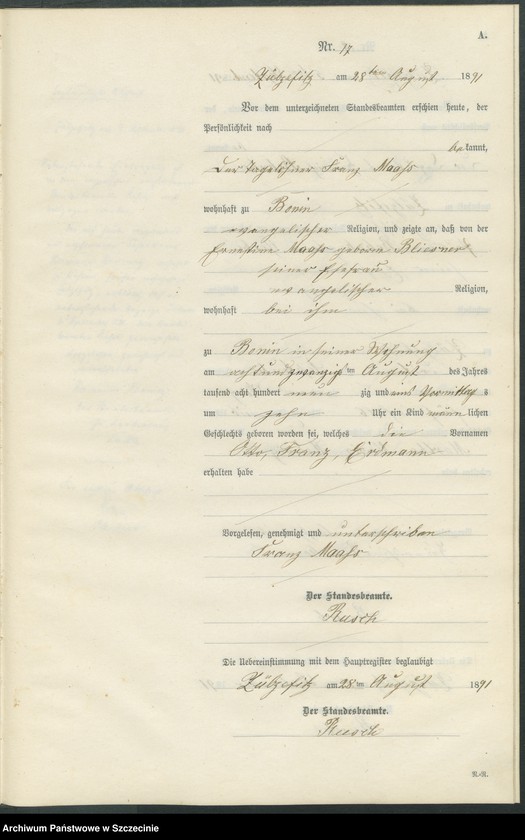 A.
Nr. 17
Zülzefitz am 28ten August 1891
Vor dem unterzeichneten Standesbeamten erschien heute, der
Persönlichkeit nach
bekannt,
der Tagelöhner Franz Maahs
wohnhaft zu Bonin
evangelischer Religion, und zeigte an, daß von der
Ernestine Maahs geborene Bliesner
seiner Ehefrau
evangelischer Religion,
wohnhaft bei ihm
zu Bonin in seiner Wohnung
am achtundzwanzigsten August des Jahres
tausend acht hundert neunzig und eins Vormittags
um zehn Uhr ein Kind männlichen
Geschlechts geboren worden sei, welches die Vornamen
Otto, Franz, Erdmann
erhalten habe
Vorgelesen, genehmigt und unterschrieben
Franz Maahs
Der Standesbeamte.
Rusch
Die Uebereinstimmung mit dem Hauptregister beglaubigt
Zülzefitz am 28ten August 1891
Der Standesbeamte.
Rusch
Archiwum Państwowe w Szczecinie